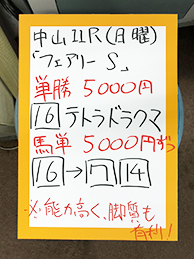 中山11R(日曜)
「フェアリーS」
単勝 5000円
16 テトラドラクマ
馬単 5000円ずつ
16→7 14
※能力高く、脚質も
有利!!